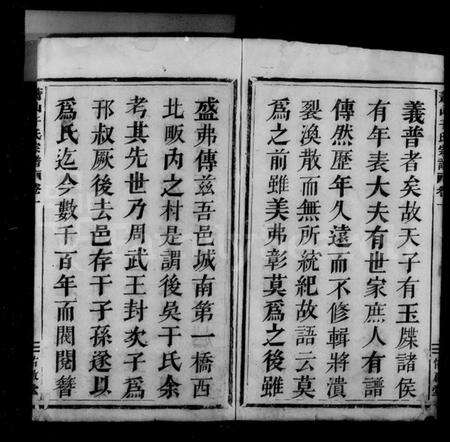 義普者矣故天子有玉牒諸侯
有年表大夫有世家庶人有譜
傳然歷年久遠而不修輯將潰
裂渙散而無所統紀故語云莫
為之前雖美弗彰莫為之後雖
盛弗傳茲吾邑城南第一橋西
北畈內之村是謂後吳于氏余
考其先世乃周武王封次子為
邘叔厥後去邑存于子孫遂以
為氏迄今數千百年而閥閱簪